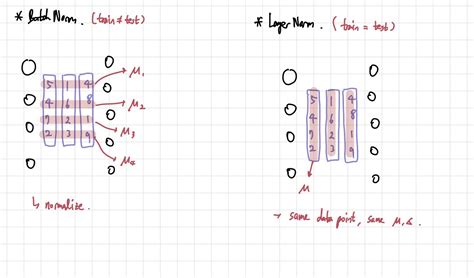 * Batch Norm. (train ≠ test)
5 1 4 → μ₁
4 6 8 → μ₂
9 2 1 → μ₃
2 3 9 → μ₄
↳ normalize.
* Layer Norm. (train = test)
5 1 4
4 6 8
9 2 1
2 3 9
μ
→ same data point, same μ, σ.